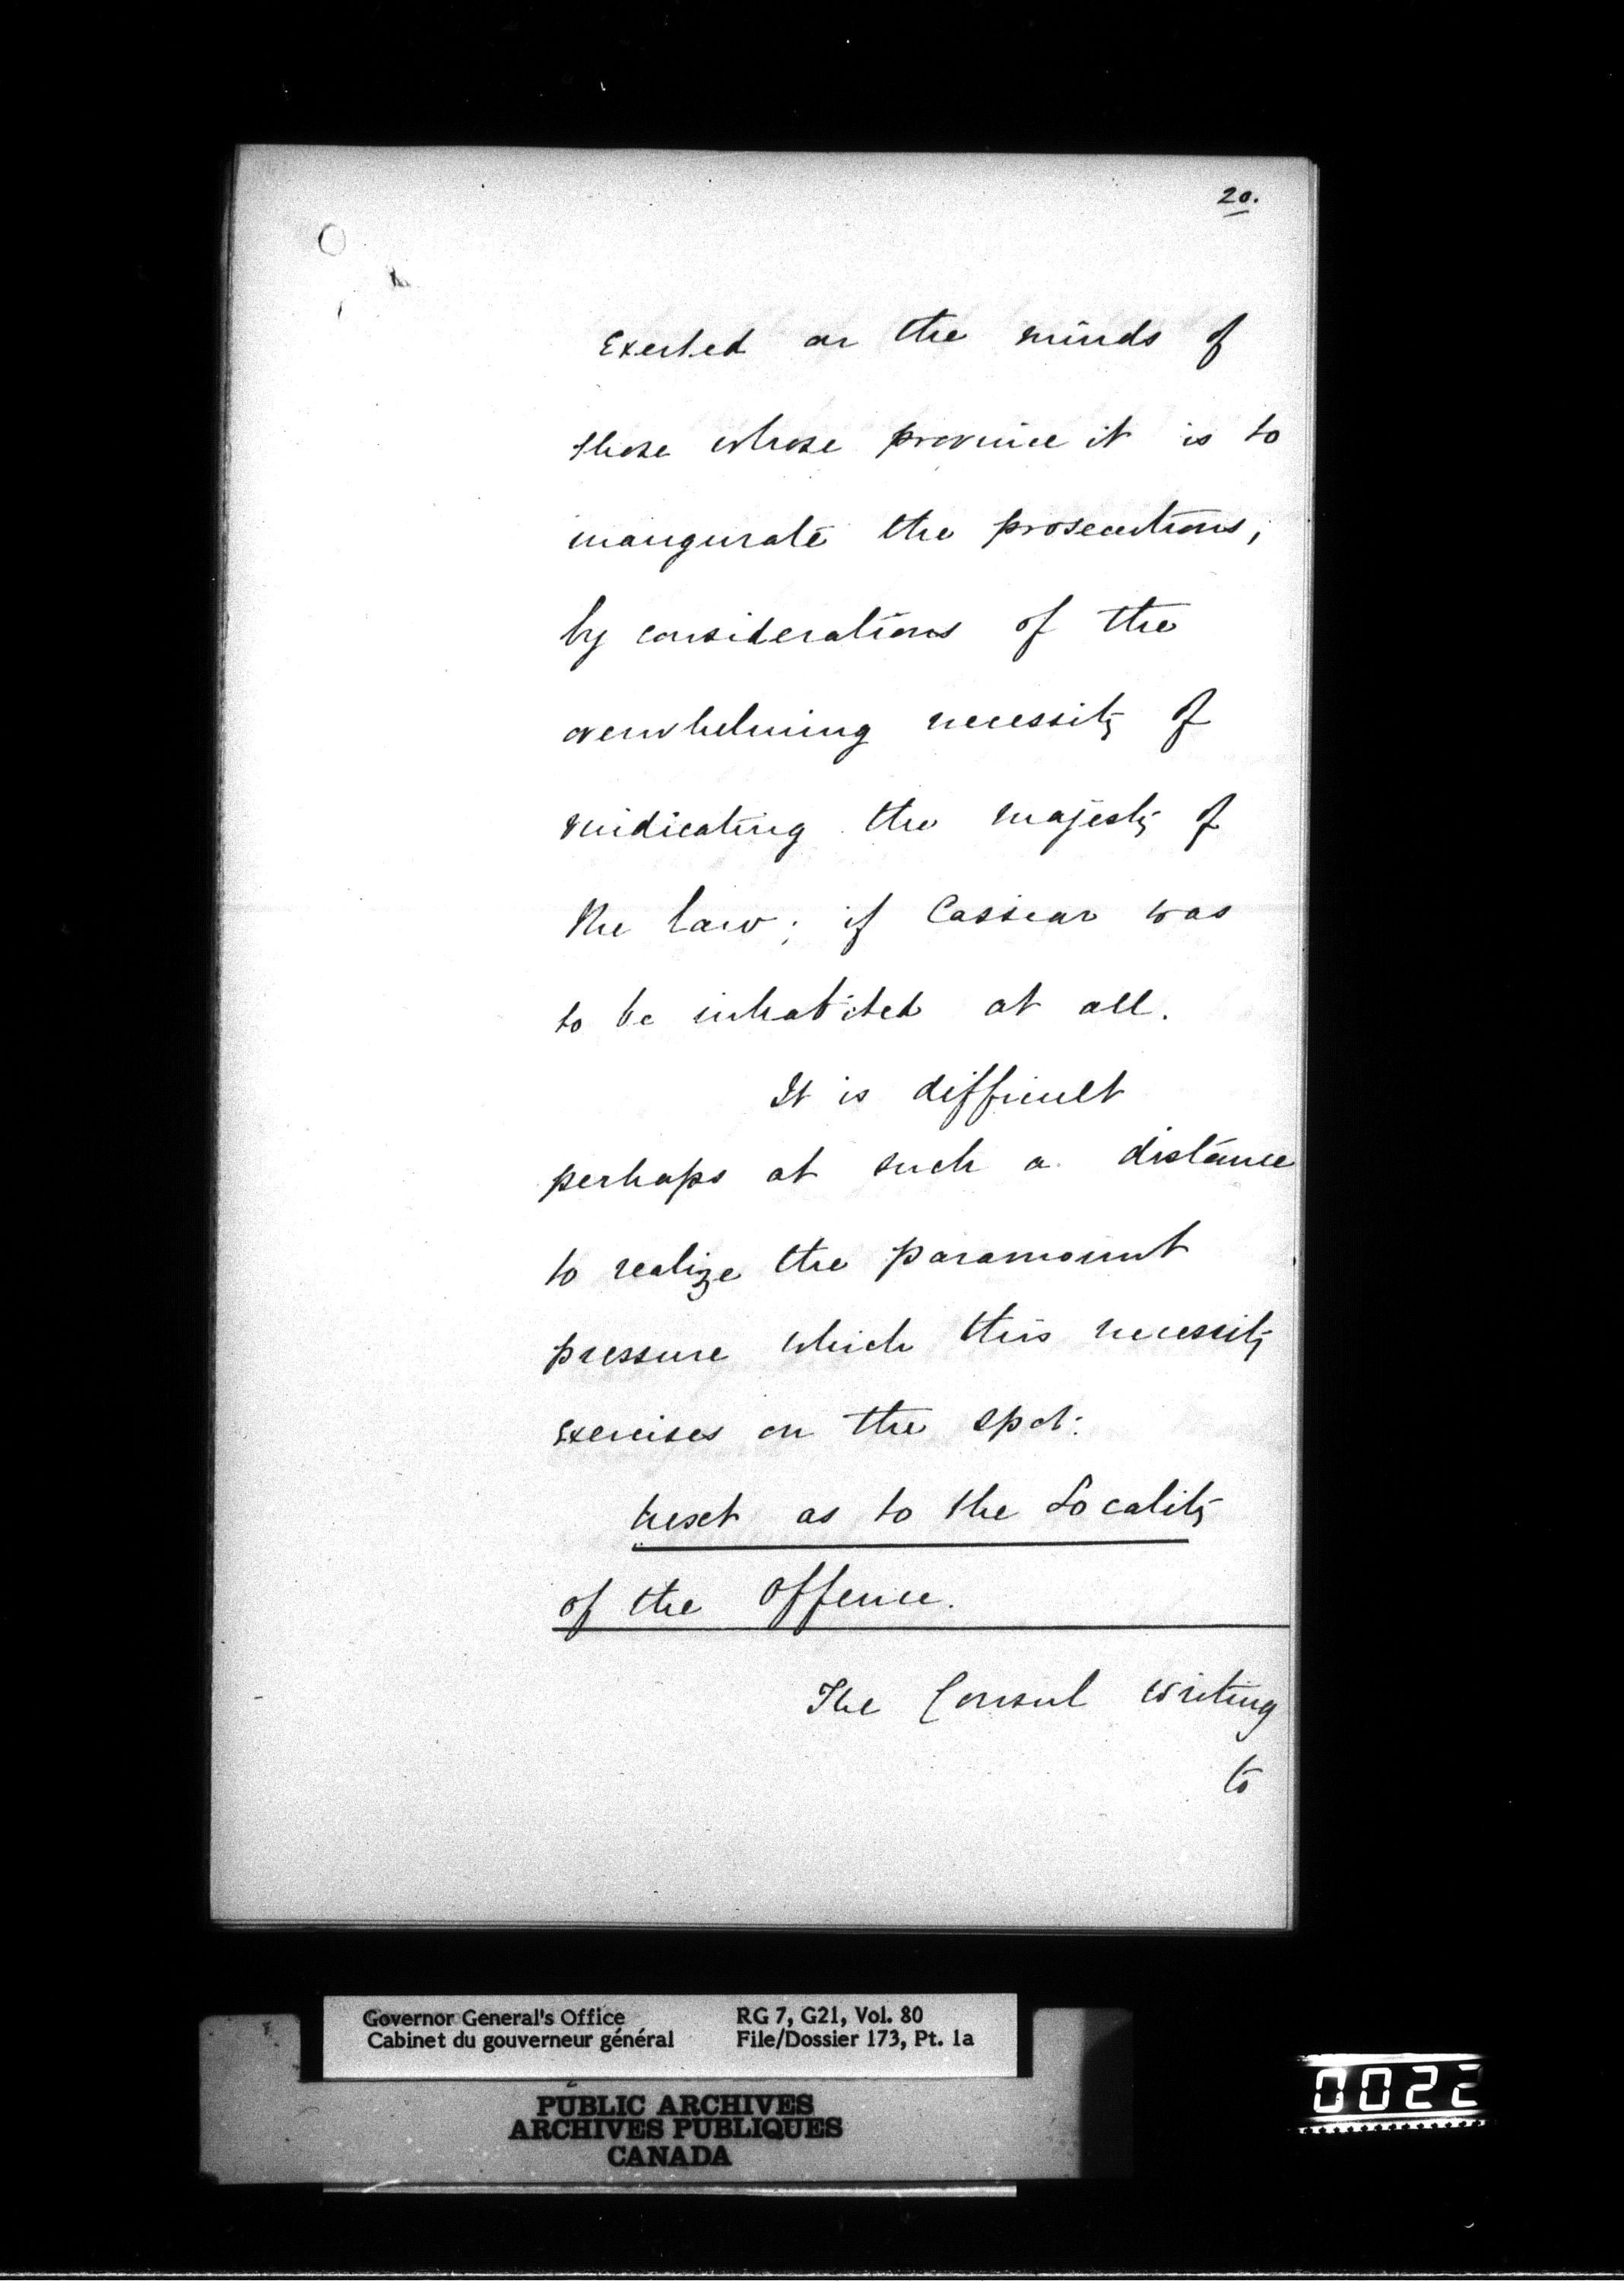 20.
Exerted on the minds of
those whose province it is to
inaugurate the prosecutions,
by considerations of the
overwhelming necessity of
vindicating the majesty of
the law; if Cassiar was
to be inhabited at all.
It is difficult
perhaps at such a distance
to realize the paramount
pressure which this necessity
exercises on the spot.
Next as to the Locality
of the Offence.
The Consul writing
to
Governor General's Office
Cabinet du gouverneur général
RG 7, G21, Vol. 80
File/Dossier 173, Pt. 1a
PUBLIC ARCHIVES
ARCHIVES PUBLIQUES
CANADA
0022